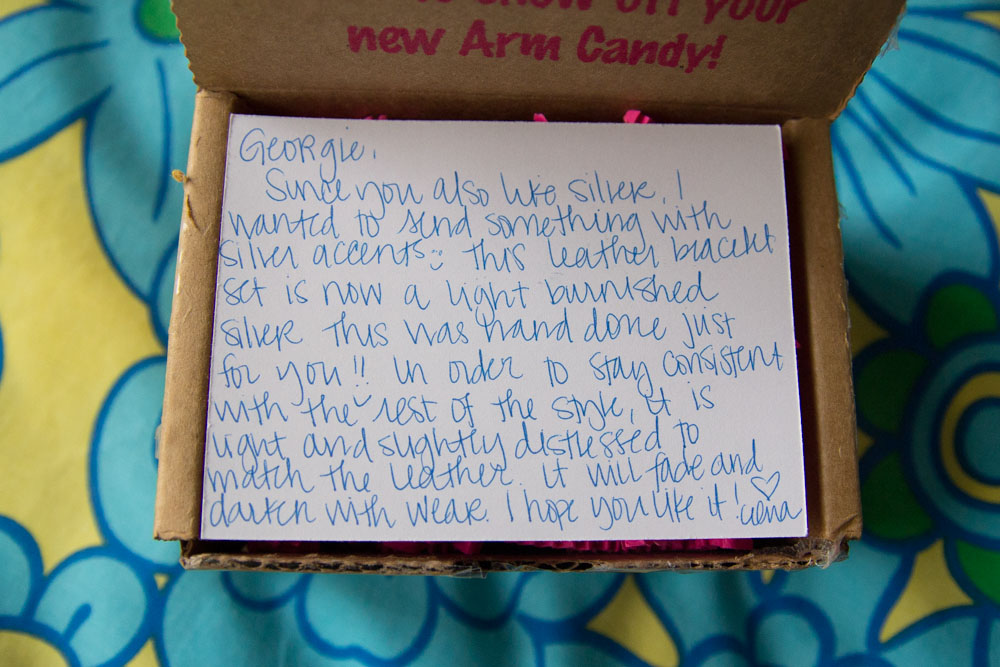 show off your
new Arm Candy!
Georgie,
Since you also like silver, I
wanted to send something with
silver accents :) This leather bracelet
set is now a light burnished
silver. This was hand done just
for you!! In order to stay consistent
with the rest of the style, it is
light and slightly distressed to
match the leather. It will fade and
darken with wear. I hope you like it! ♡